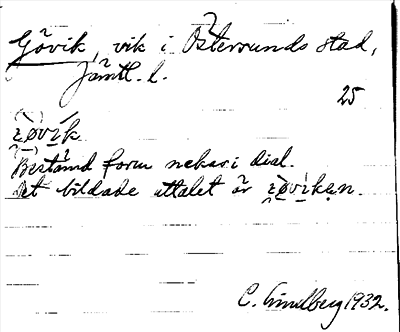 Gövik, vik i Östersunds stad,
Jämtl. l.
25
Bestämd form nekas i dial.
Det bildade uttalet är
C. Lindberg 1932.